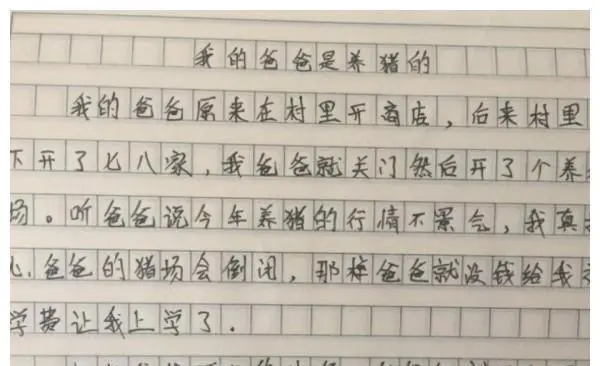 我的爸爸是养猪的
我的爸爸原来在村里开商店，后来村里
下开了七八家，我爸爸就关门然后开了个养
场。听爸爸说今年养猪的行情不景气，我真
心爸爸的猪场会倒闭，那样爸爸就没钱给我
学费让我上学了．